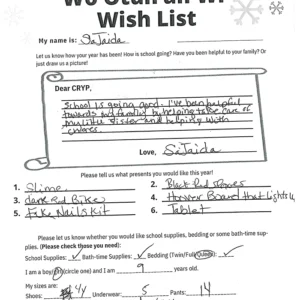 Wish List
My name is: SaJaida
Let us know how your year has been! How is school going? Have you been helpful to your family? Or
just draw a picture!
Dear CRYP,
School is going good. I've been helpful
towards my family by helping to take care of
my little sister and helping with
chores.
Love, SaJaida
Please tell us what presents you would like this year!
1. Slime 2. Black Red shoes
3. dark Red Bike 4. Hover Board that lights u
5. Fake Nails Kit 6. Tablet
Please let us know whether you would like school supplies, bedding or some bath-time sup-
plies. (Please check those you need):
School Supplies: ✓ Bath-time Supplies: ✓ Bedding (Twin/Full/Queen): ✓
I am a boy/girl (circle one) and I am 9 years old.
My sizes are:
Shoes: 4y Underwear: 5 Pants: 14